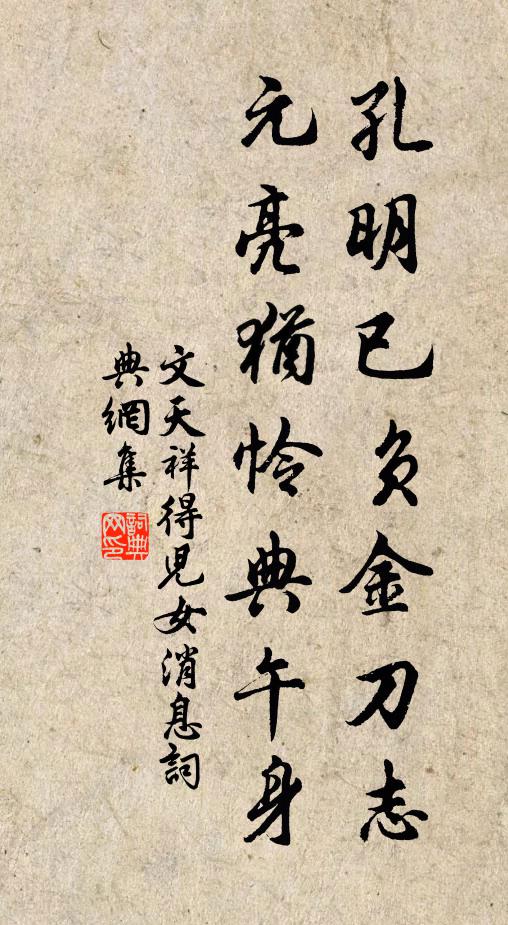 孔明已负金刀志
元亮猶怜典午身
文天祥得兒女消息詞
典網集
詞典
网印